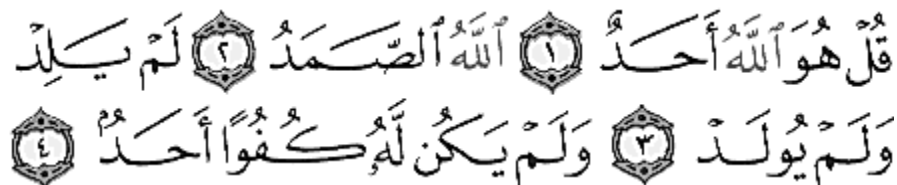 قُلْ هُوَ ٱللَّهُ أَحَدٌ ١ ٱللَّهُ ٱلصَّمَدُ ٢ لَمْ يَلِدْ
وَلَمْ يُولَدْ ٣ وَلَمْ يَكُن لَّهُۥ كُفُوًا أَحَدٌۢ ٤